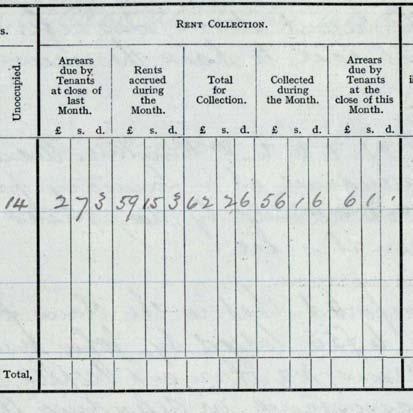 s.
RENT COLLECTION.
Unoccupied.
Arrears due by Tenants at close of last Month.
Rents accrued during the Month.
Total for Collection.
Collected during the Month.
Arrears due by Tenants at the close of this Month.
£ s. d. £ s. d. £ s. d. £ s. d. £ s. d.
14 2 7 3 59 15 3 62 2 6 56 1 6 6 1 .
Total,